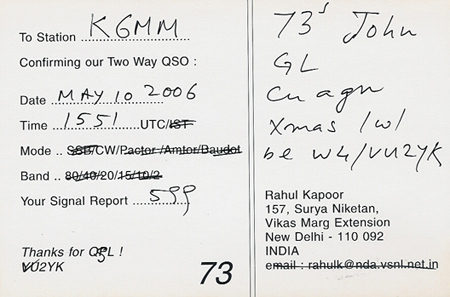 To Station K6MM
Confirming our Two Way QSO :
Date MAY 10 2006
Time 1551 UTC/IST
Mode .. SSB/CW/Pactor /Amtor/Baudot
Band .. 80/40/20/15/10/2
Your Signal Report 599
Thanks for QSL !
VU2YK
73
73's John
GL
Cu agn
Xmas /w/
be W4/VU2YK
Rahul Kapoor
157, Surya Niketan,
Vikas Marg Extension
New Delhi - 110 092
INDIA
email : rahulk@nda.vsnl.net.in